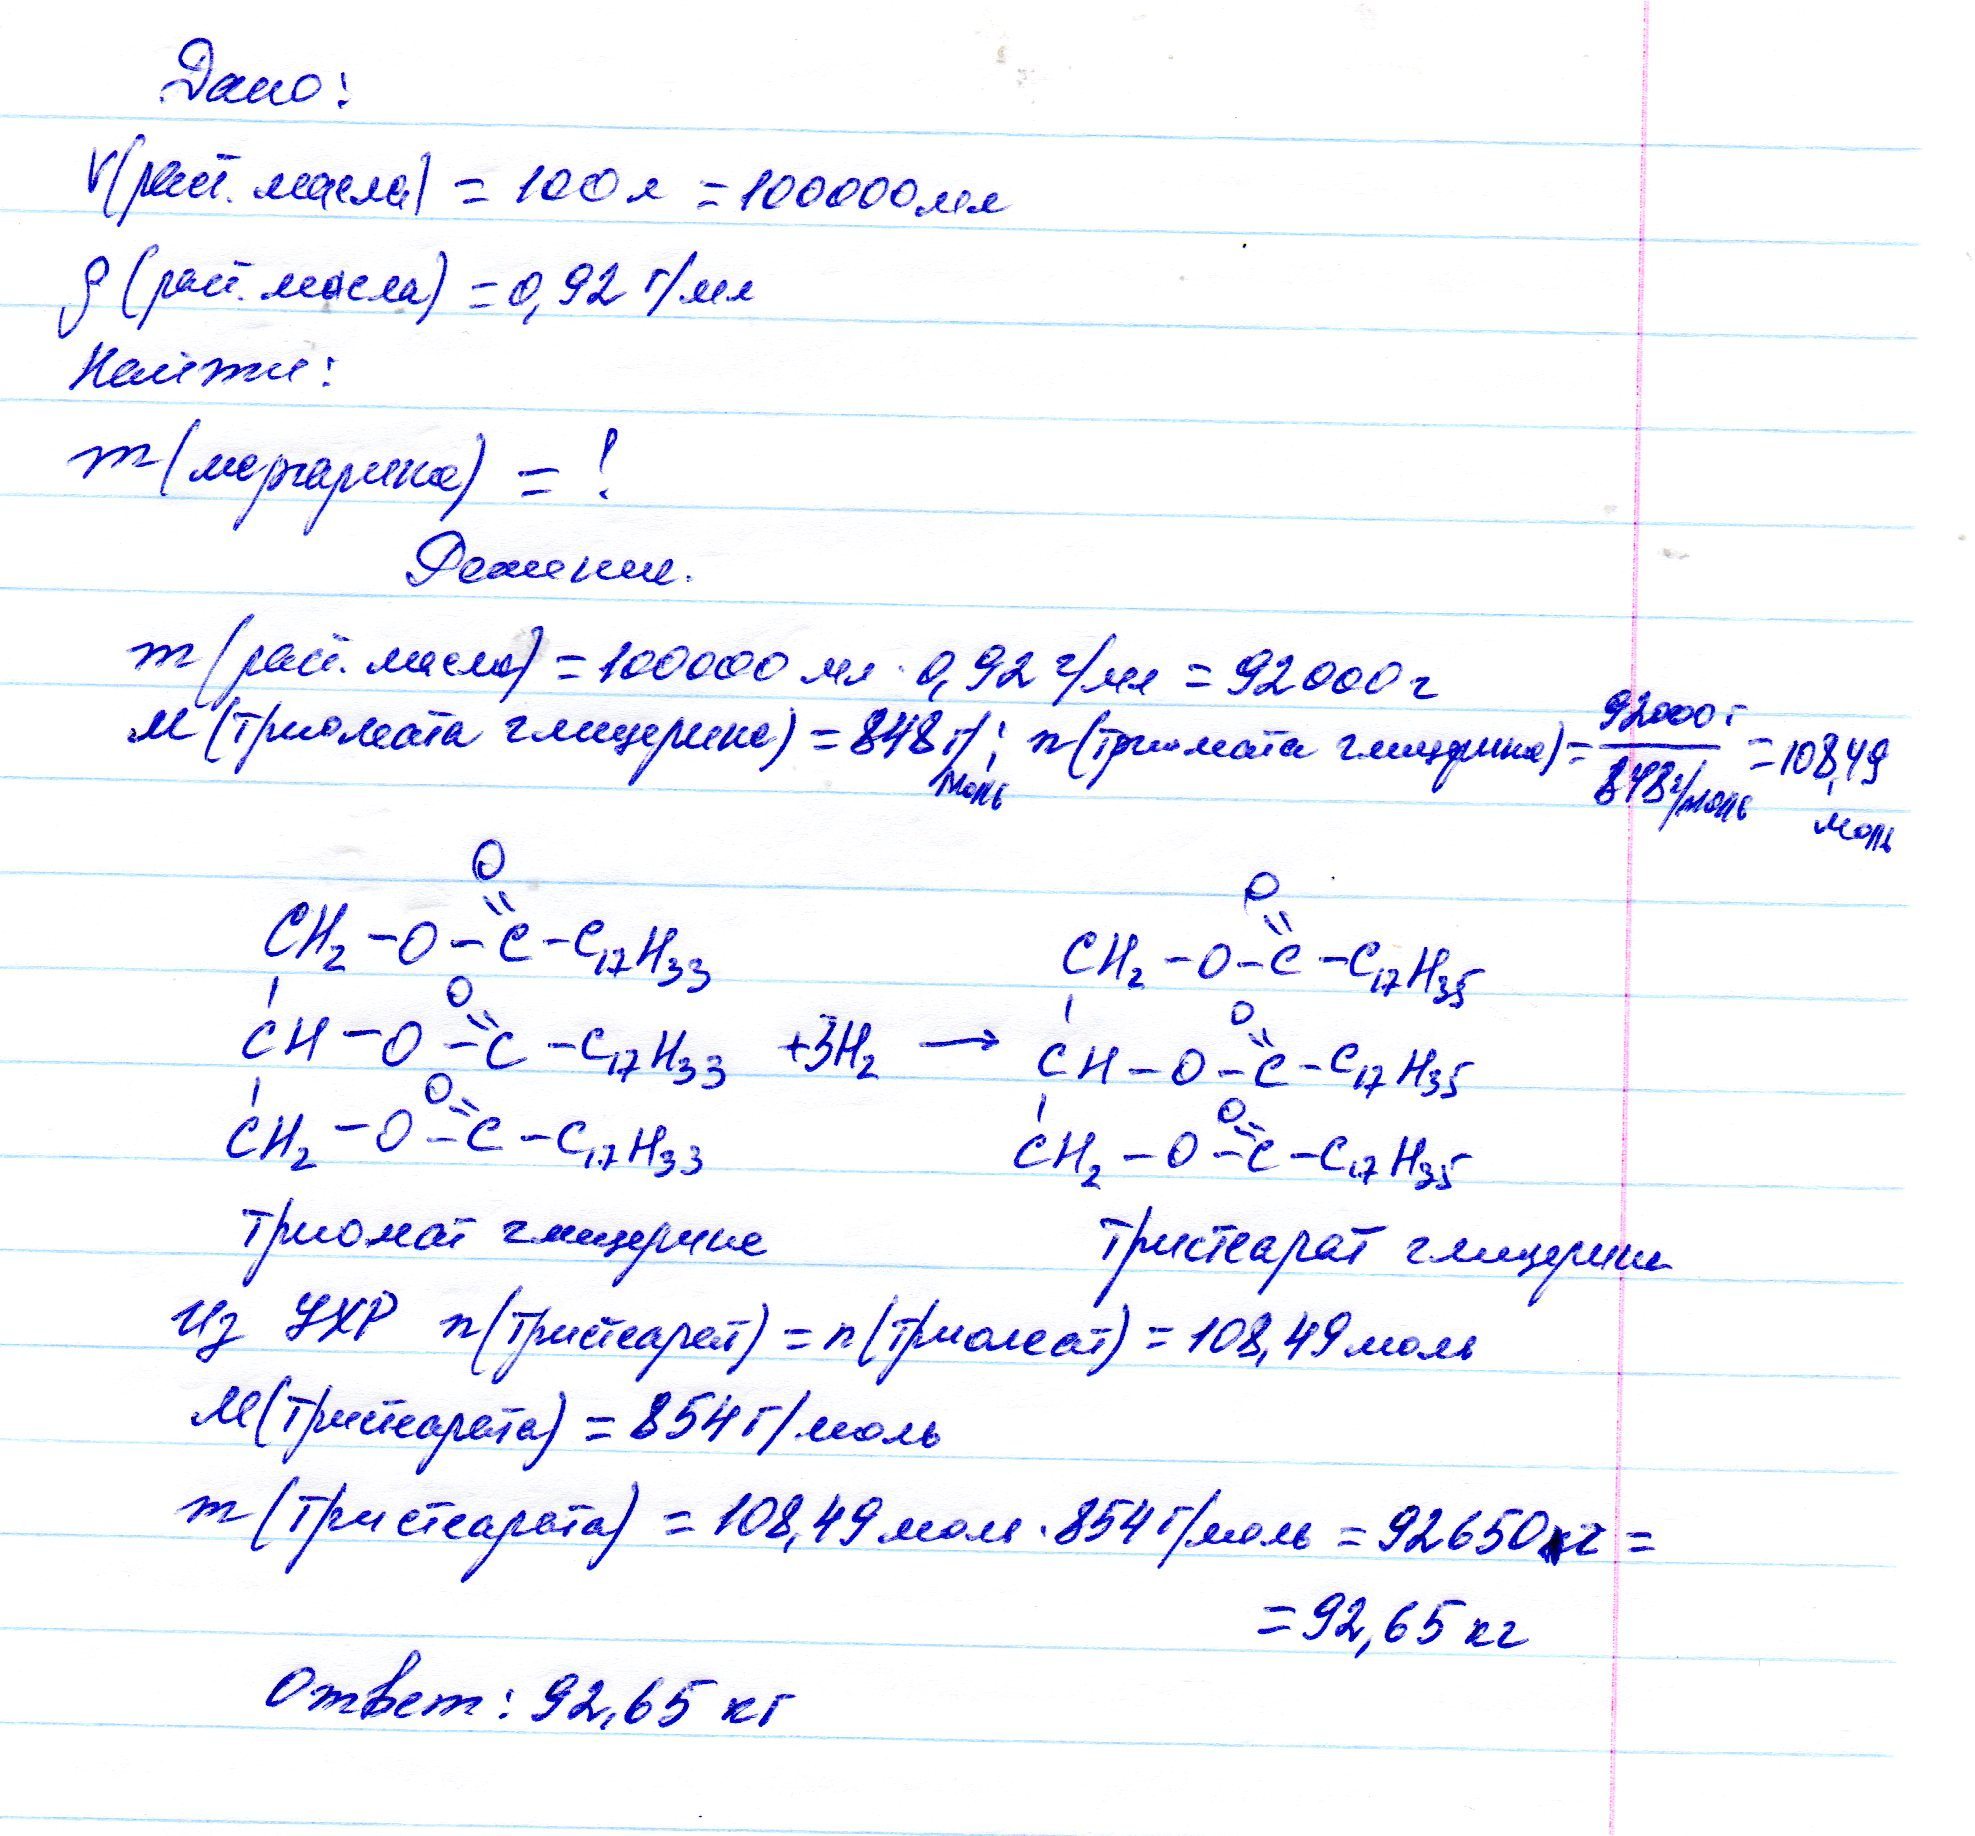 Дано:
V(раст. масла) = 100л = 100000мл
ρ(раст. масла) = 0,92 г/мл
Найти:
m(маргарина) = ?
Решение.
m(раст. масла) = 100000 мл · 0,92 г/мл = 92000г
M(триолеата глицерина) = 848 г/моль; n(триолеата глицерина) = 92000г / 848г/моль = 108,49 моль
O O
CH₂ – O – C – C₁₇H₃₃ CH₂ – O – C – C₁₇H₃₅
O O
CH – O – C – C₁₇H₃₃ +3H₂ → CH – O – C – C₁₇H₃₅
O O
CH₂ – O – C – C₁₇H₃₃ CH₂ – O – C – C₁₇H₃₅
триолеат глицерина тристеарат глицерина
Из УХР n(тристеарат) = n(триолеат) = 108,49 моль
M(тристеарата) = 854 г/моль
m(тристеарата) = 108,49 моль · 854 г/моль = 92650 г =
= 92,65 кг
Ответ: 92,65 кг